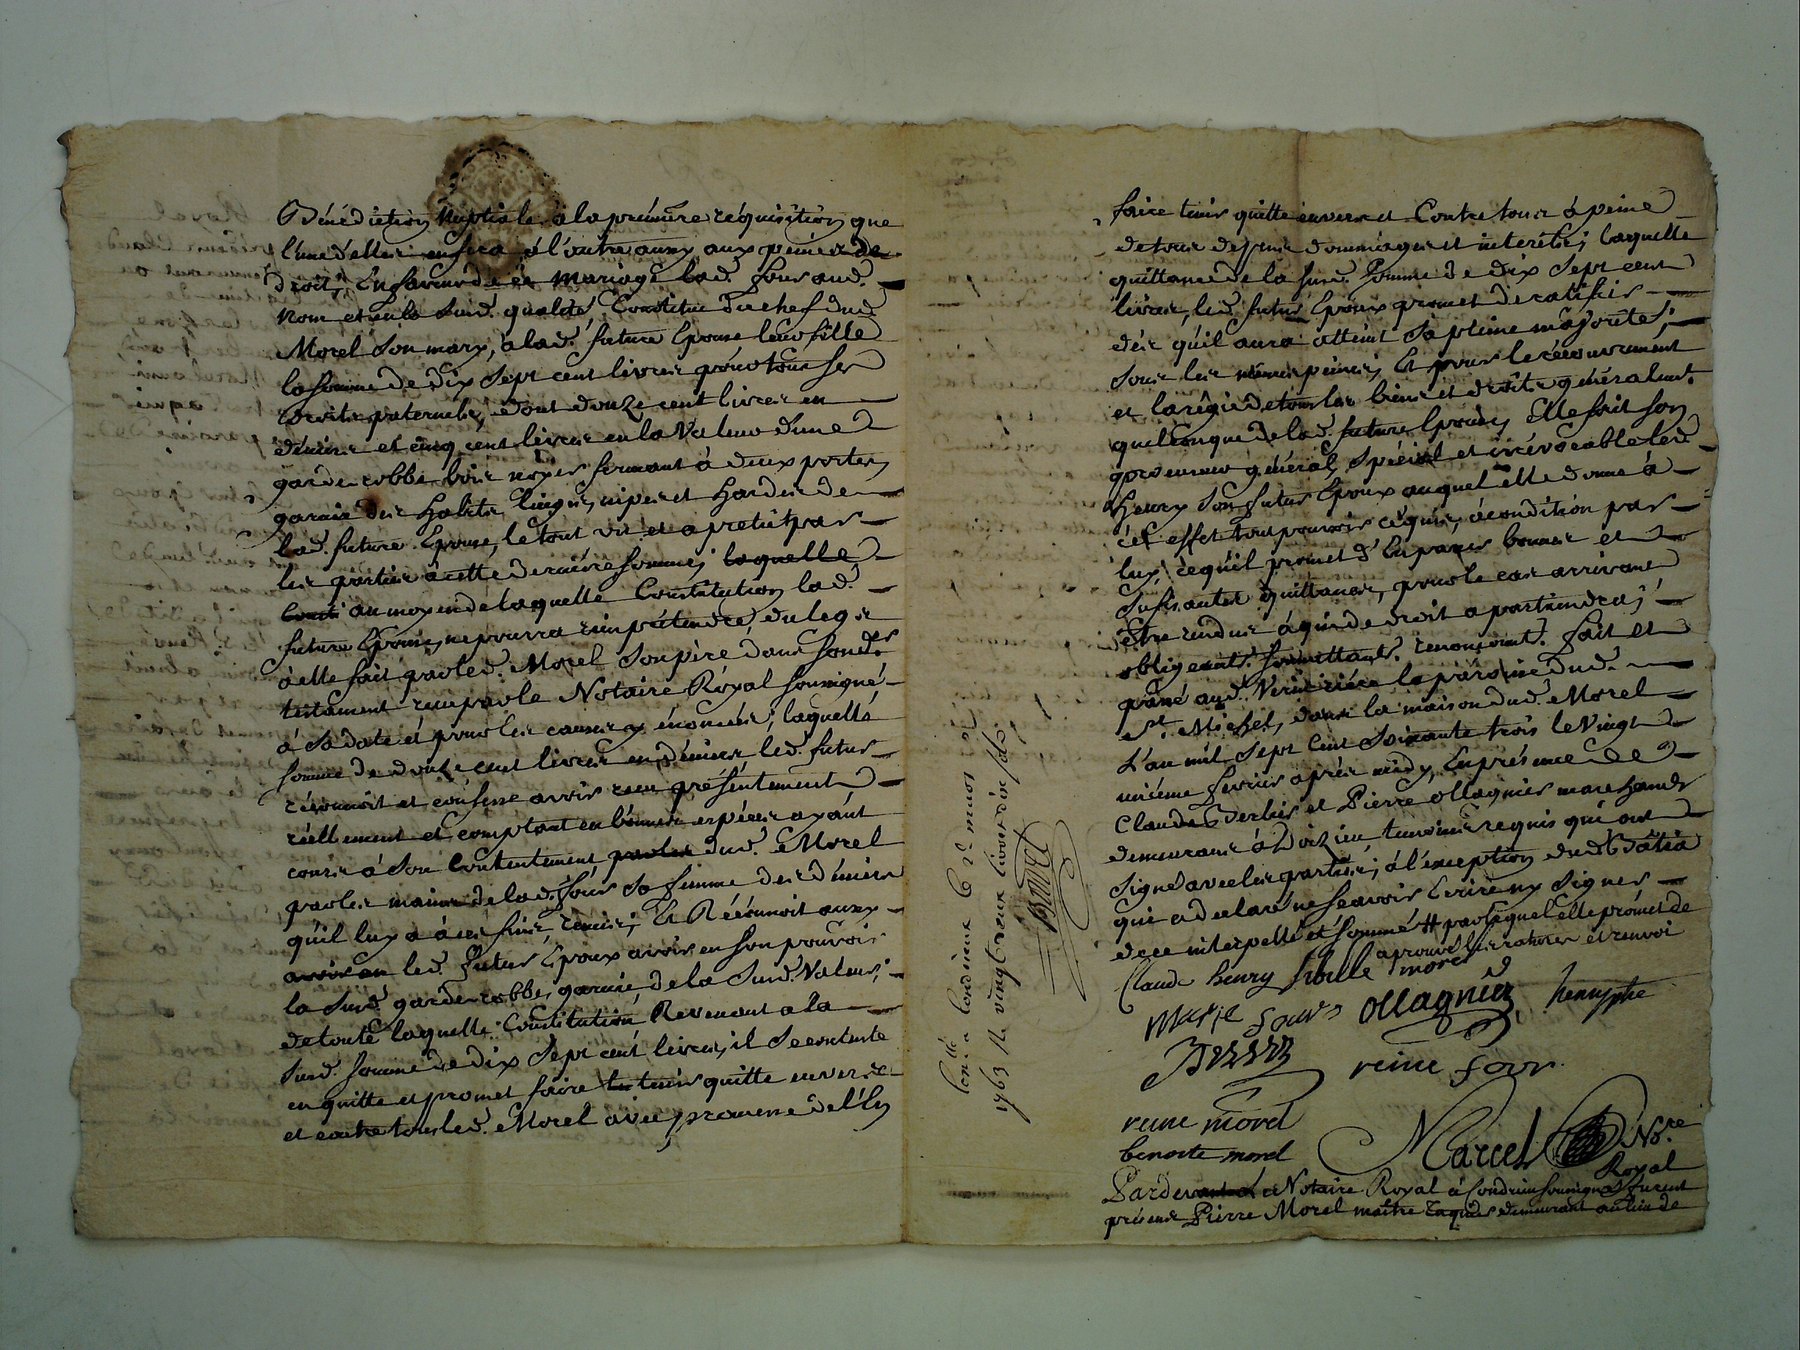 Bénédiction Nuptiale à la première réquisition que
l'une d'elles en fera à l'autre aussy aux peines de
droit; En faveur de ce mariage lad. Four aud.
Nom et en la susd. qualité, Constitue du chef dud.
Morel son mary, a lad. future Epouse leur fille
la somme de dix sept cent livres pour tous ses
droits paternels, dont douze cent livres en
déniers et cinq cent livres en la Valeur d'une
garderobbe bois noyer fermant à deux portes
garnie des habits, linges, nipes et hardes de
lad. future Epouse, le tout vû et apretié par
les parties à cette derniére somme; laquelle
au moyen de laquelle Constitution lad.
future Epouse, ne pourra rien prétendre du legs
à elle fait par led. Morel son pére dans sond.
testament reçu par le Notaire Royal soussigné
à sa date et pour les causes y énoncées; laquelle
somme de douze cent livres en déniers led. futur
réconnoit et confesse avoir reçu présentement
réellement et comptant en bonnes espéces ayant
cours à son Contentement dud. Morel
par les mains de lad. Four sa femme des déniers
qu'il luy a à ces fins remis; Et Réconnoit aussy
led. Futur Epoux avoir en son pouvoir
la susd. garderobbe, garnie de la susd. Valeur;
de toute laquelle Constitution Revenant a la
susd. somme de dix sept cent livres, il se contente
en quitte et promet faire tenir quitte envers
et contre tous led. Morel avec promesse de l'en
faire tenir quitte envers et Contre tous à peine
de tous dépens dommages et interêts; laquelle
quittance de la susd. somme de dix sept cent
livres, led. futur Epoux promet de ratifier
dès qu'il aura atteint sa pleine majorité;
sous les mêmes peines, Et pour le récouvrement
et la régie de tous les biens et droits généralemt.
quelconque de lad. future Epouse, Elle fait son
procureur général, spécial et irrévocable led.
Henry son futur Epoux auquel elle donne à
cet effet tout pouvoir réquis, à condition par
luy, ce qu'il promet d'en passer bonnes et
sufisantes quittances, pour le cas arrivant
être rendues à qui de droit apartiendra;
obligeants. soumettants. renonçants. Fait et
passé aud. la paroisse dud.
St. Michel, dans la maison dud. Morel
L'an mil sept cent soixante trois le Vingt
uniéme fevrier aprés midy, En présence de
Claude Verdier et Pierre Ollagnier marchands
demeurants à Doizieu, temoins requis qui ont
signé avec les parties; à l'exception dud.
qui a déclaré ne sçavoir Ecrire ny signer
de ce interpellé et sommé # par lequel elle promet de
aprouvé les ratures et renvoi
Claude henry sibille morel
Marie fours Ollagnier henry
reine four
reine morel
benoite morel Marcel Nore.
Royal
Pardevant Le Notaire Royal à Condrieu soussigné furent
présents Pierre Morel maître demeurant au lieu de
Conllé. a Condrieu le 2e. mars
1763 R. vingt deux livres dix sols